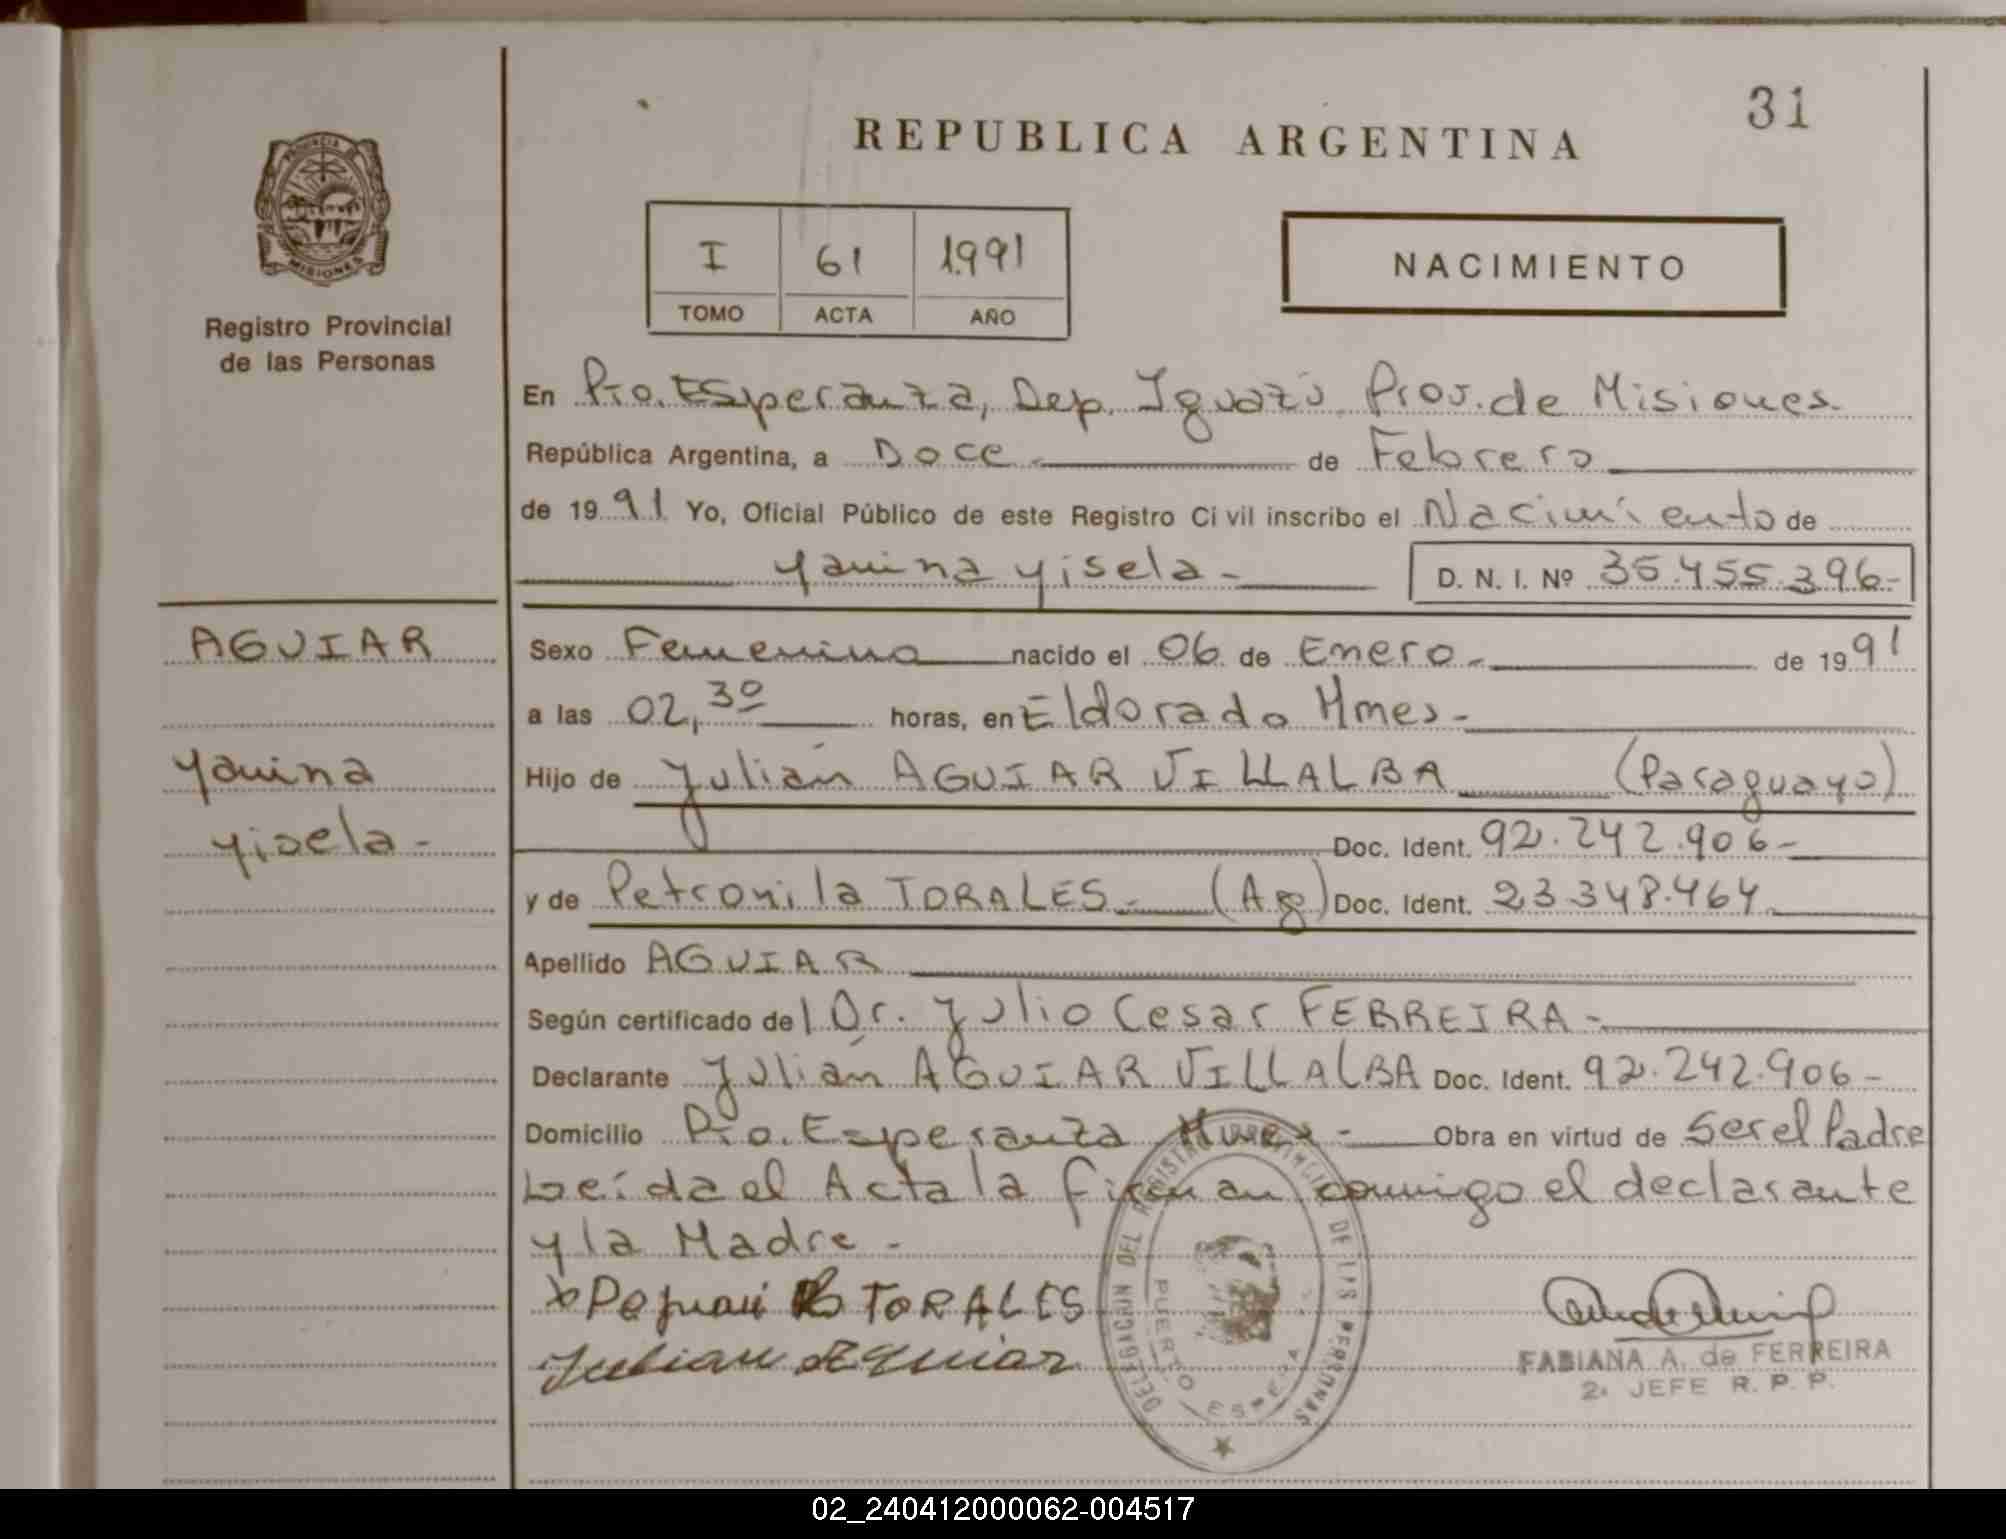 31
REPUBLICA ARGENTINA
PROVINCIA DE
MISIONES
Registro Provincial
de las Personas
I 61 1991
TOMO ACTA AÑO
NACIMIENTO
En Pto. Esperanza, Dep. Iguazú Prov. de Misiones
República Argentina, a Doce de Febrero
de 1991 Yo, Oficial Público de este Registro Civil inscribo el Nacimiento de
Yanina Yisela - D. N. I. Nº 35.455.396-
AGUIAR
Yanina
Yisela -
Sexo Femenino nacido el 06 de Enero - de 1991
a las 02,30 horas, en Eldorado Mnes -
Hijo de Julián AGUIAR VILLALBA (Paraguayo)
Doc. Ident. 92.242.906-
y de Petronila TORALES - (Ag) Doc. Ident. 23.348.464
Apellido AGUIAR
Según certificado del Dr. Julio Cesar FERREIRA -
Declarante Julián AGUIAR VILLALBA Doc. Ident. 92.242.906-
Domicilio Pto. Esperanza Mnes - Obra en virtud de Ser el Padre
Leída el Acta la firman conmigo el declarante
y la Madre -
TORALES
Julian Aguiar
DELEGACION DEL REGISTRO PROVINCIAL DE LAS PERSONAS
PUERTO ESPERA
FABIANA A. de FERREIRA
2. JEFE R. P. P.
02_240412000062-004517